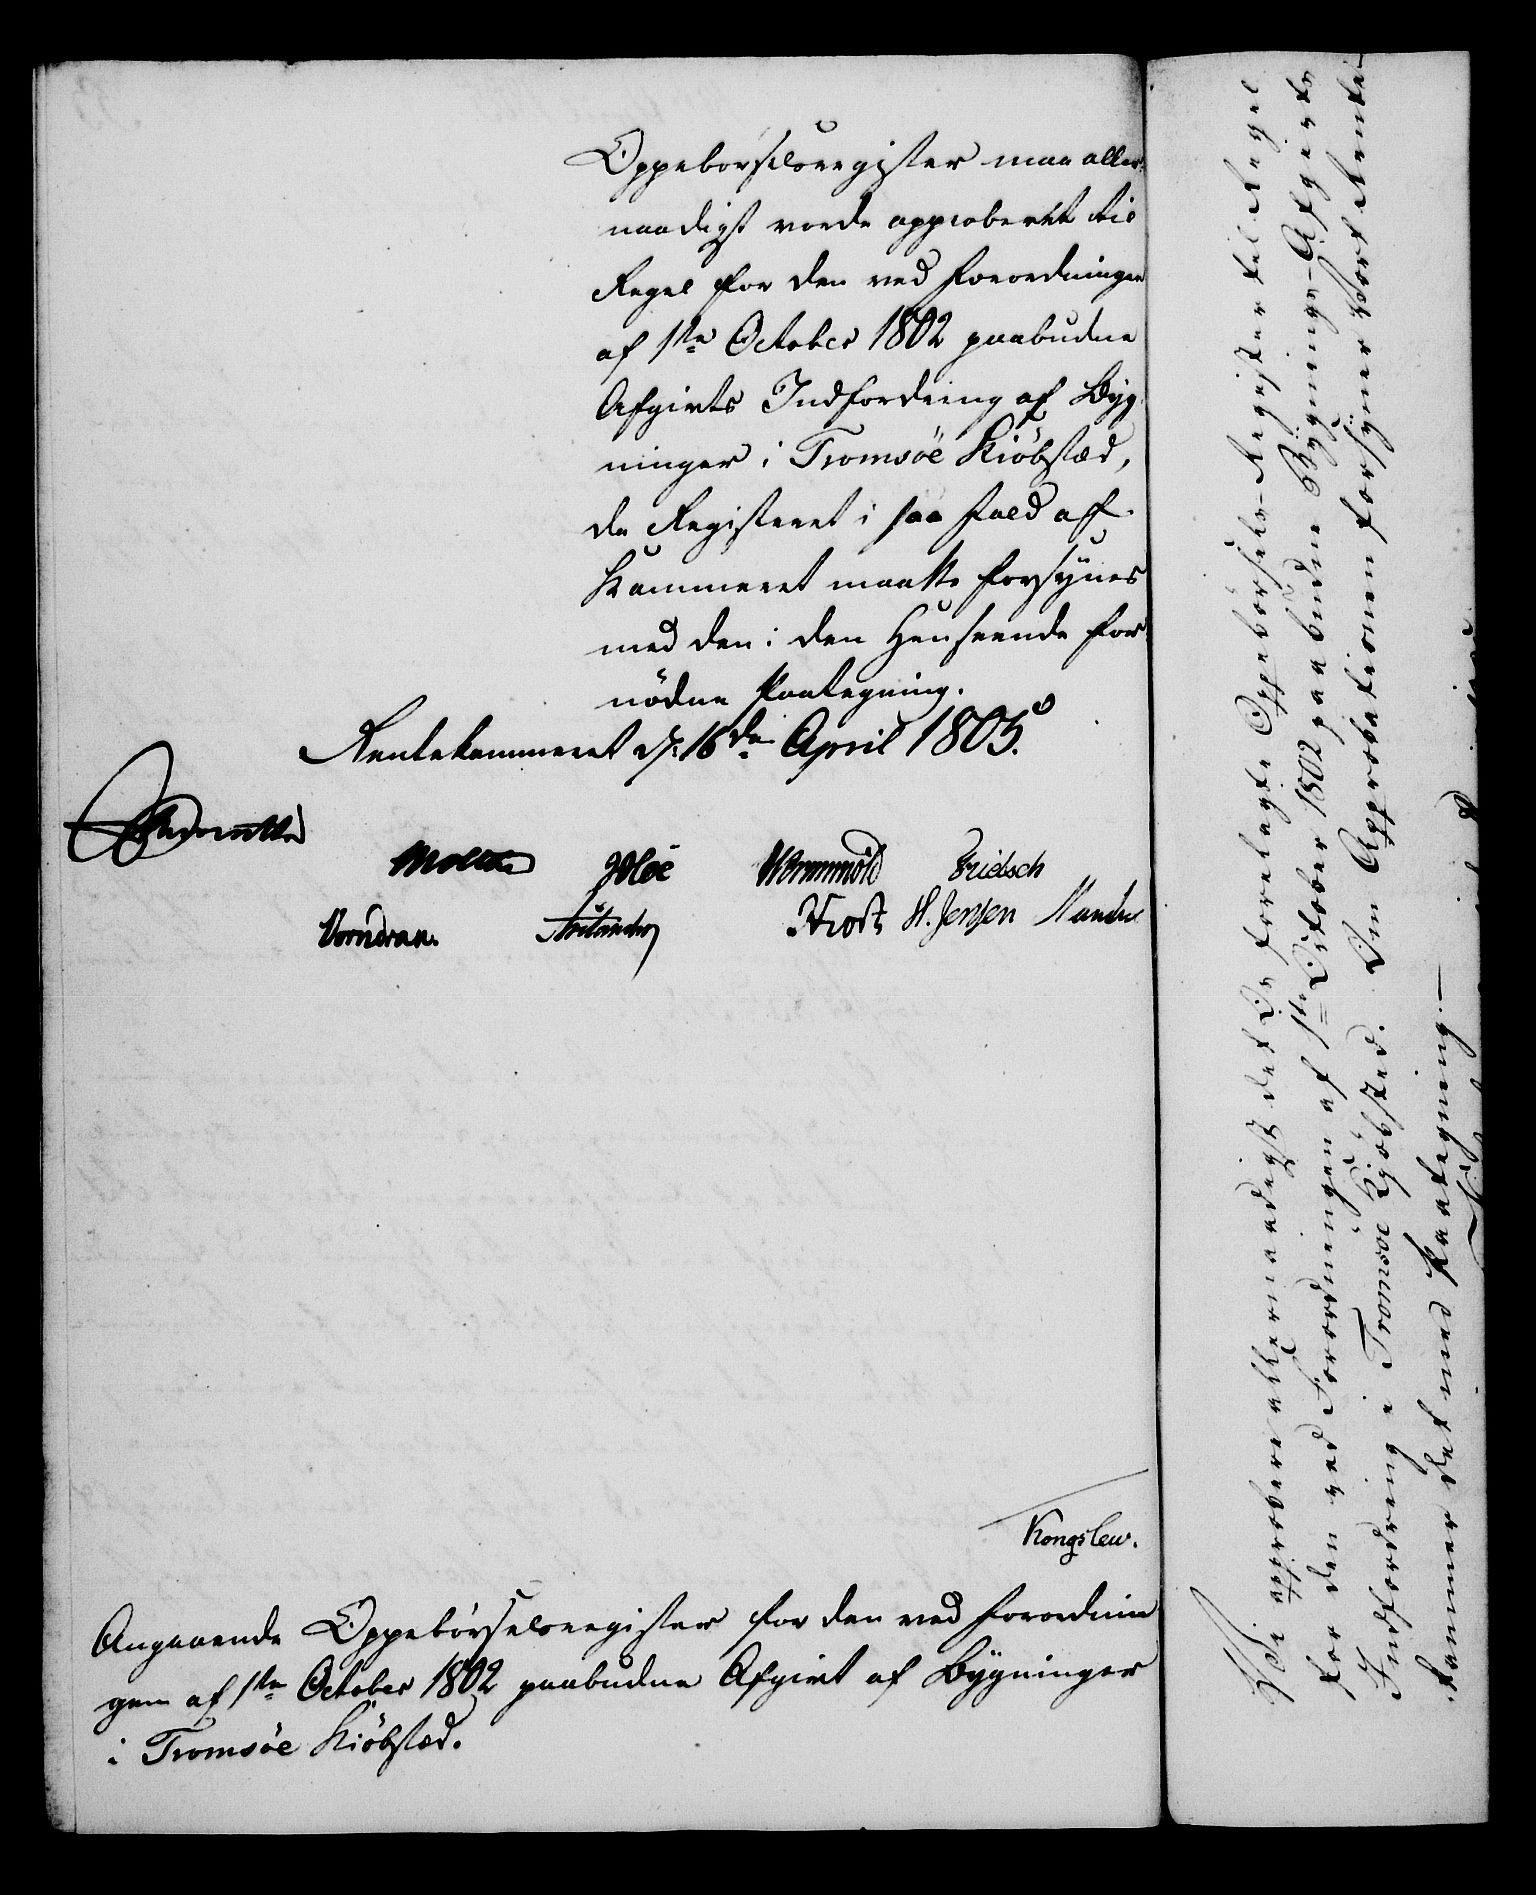 Oppebørselsregister maa aller-
naadigst vorde approberet til
Regel for den ved Forordningen
af 1ste October 1802 paabudne
Afgivts Indfordring af Byg-
ninger i Tromsöe Kiöbstæd,
da Registeret i saa Fald af
Kammeret maatte forsÿnes
med den i den Henseende for-
nödne Paategning.
Rentekammeret d. 16de April 1805.
Moltke Wormskiold Fridsch
Vorndran. Frost H. Jensen
Kongslew.
Angaaende Oppebörselsregister for den ved Forordnin-
gen af 1ste October 1802 paabudne Afgivt af Bygninger
i Tromsöe Kiöbstæd.
Vi approbere allernaadigst det Os forelagte Oppebörsels-Register til Regel
for den ved Forordningen af 1ste October 1802 paabudne Bÿgnings-Afgivts
Indfordring i Tromsöe Kjöbsted. Om Approbationen forsÿner Vort Rente-
kammer det med Paategning.—